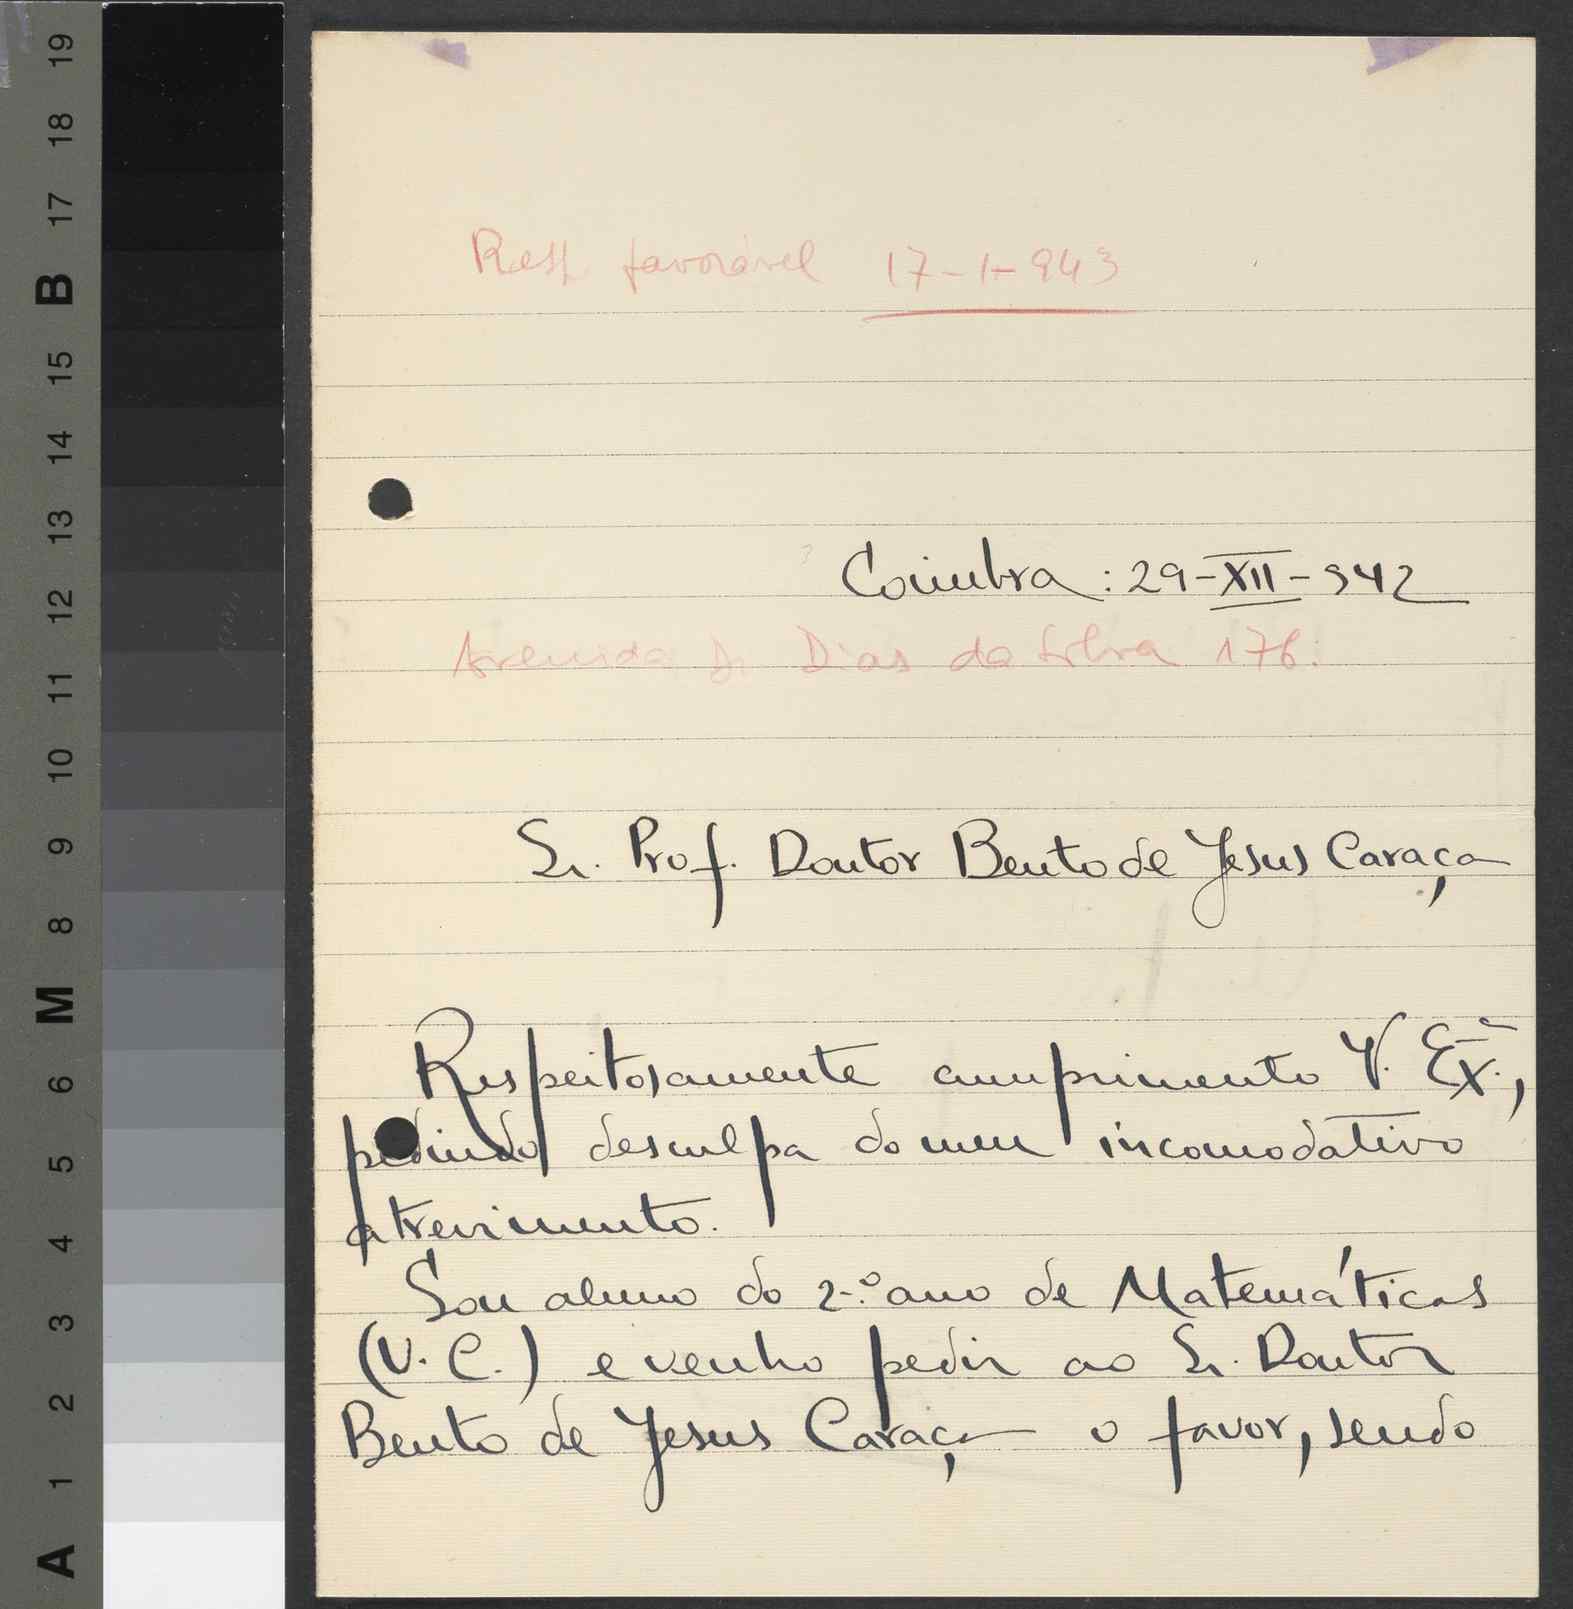 Resp. favorável 17-1-943
Coimbra: 29-XII-942
Avenida Dr Dias da Silva 176.
Sr. Prof. Doutor Bento de Jesus Caraça
Respeitosamente cumprimento V. Ex.ª,
pedindo desculpa do meu incomodativo
atrevimento.
Sou aluno do 2.º ano de Matemáticas
(U. C.) e venho pedir ao Sr. Doutor
Bento de Jesus Caraça o favor, sendo
19
18
17
B
15
14
13
12
11
10
9
8
M
6
5
4
3
2
1
A